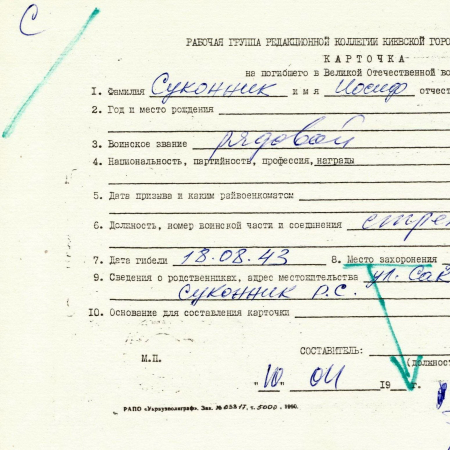 С
РАБОЧАЯ ГРУППА РЕДАКЦИОННОЙ КОЛЛЕГИИ КИЕВСКОЙ ГОРО
КАРТОЧКА
на погибшего в Великой Отечественной во
1. Фамилия Суконник имя Иосиф отчест
2. Год и место рождения
3. Воинское звание рядовой
4. Национальность, партийность, профессия, награды
5. Дата призыва и каким райвоенкоматом
6. Должность, номер воинской части и соединения стрел
7. Дата гибели 18.08.43 8. Место захоронения
9. Сведения о родственниках, адрес местожительства ул. Сак
Суконник Р.С.
10. Основание для составления карточки
СОСТАВИТЕЛЬ:
М.П. (должност
"10" 04 19 г.
РАПО «Укрвузполиграф». Зак. № 05817, т. 5000. 1990.